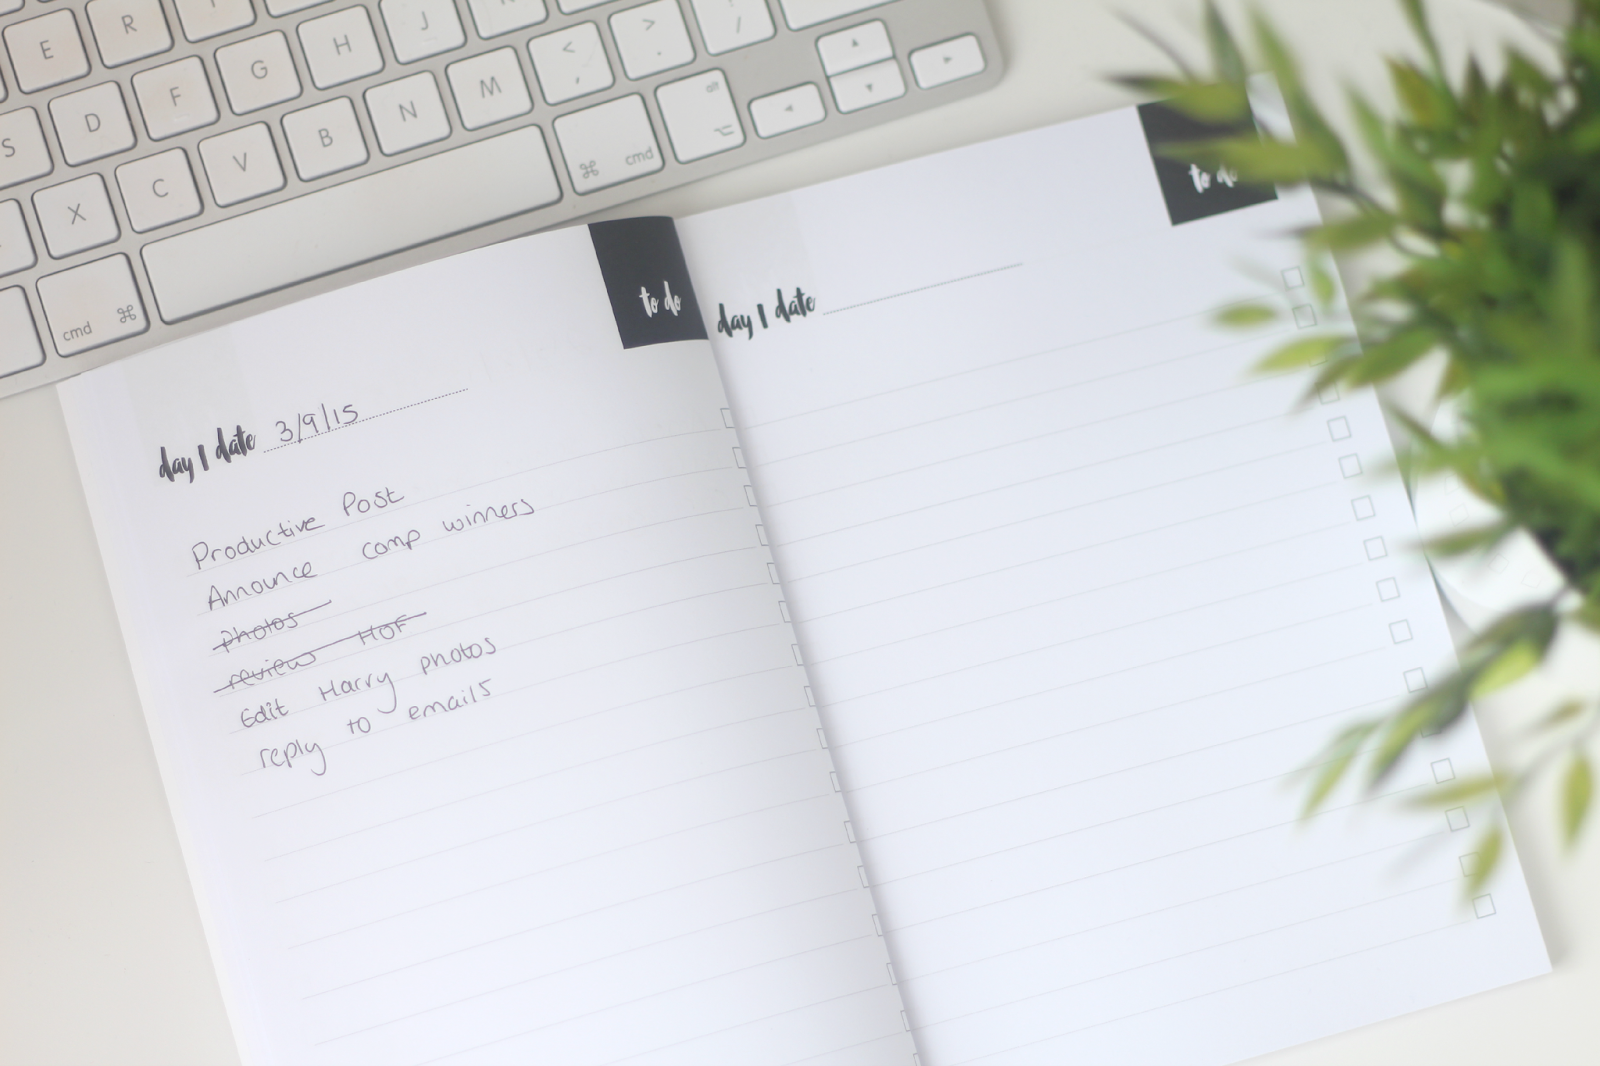 E R
S D F G H J
X C V B N M < , > . /
cmd ⌘ ⌘ cmd alt ⌥
to do
day | date 3/9/15
Productive Post
Announce comp winners
photos
reviews HOF
Edit Harry photos
reply to emails
to do
day | date